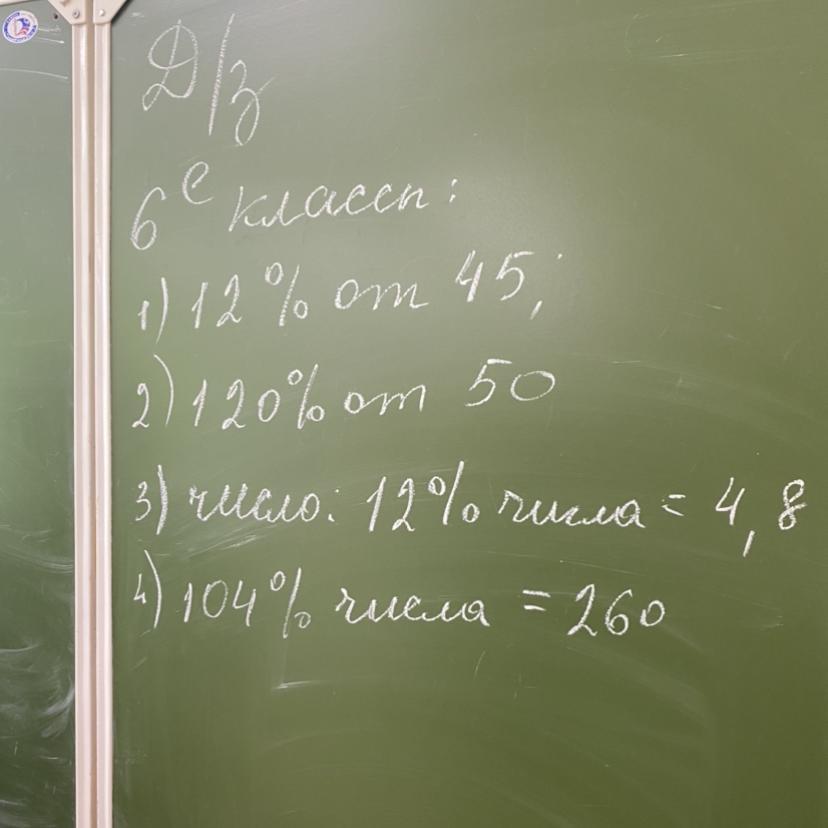 Д/з
6е классы:
1) 12% от 45;
2) 120% от 50
3) число: 12% числа = 4,8
4) 104% числа = 260